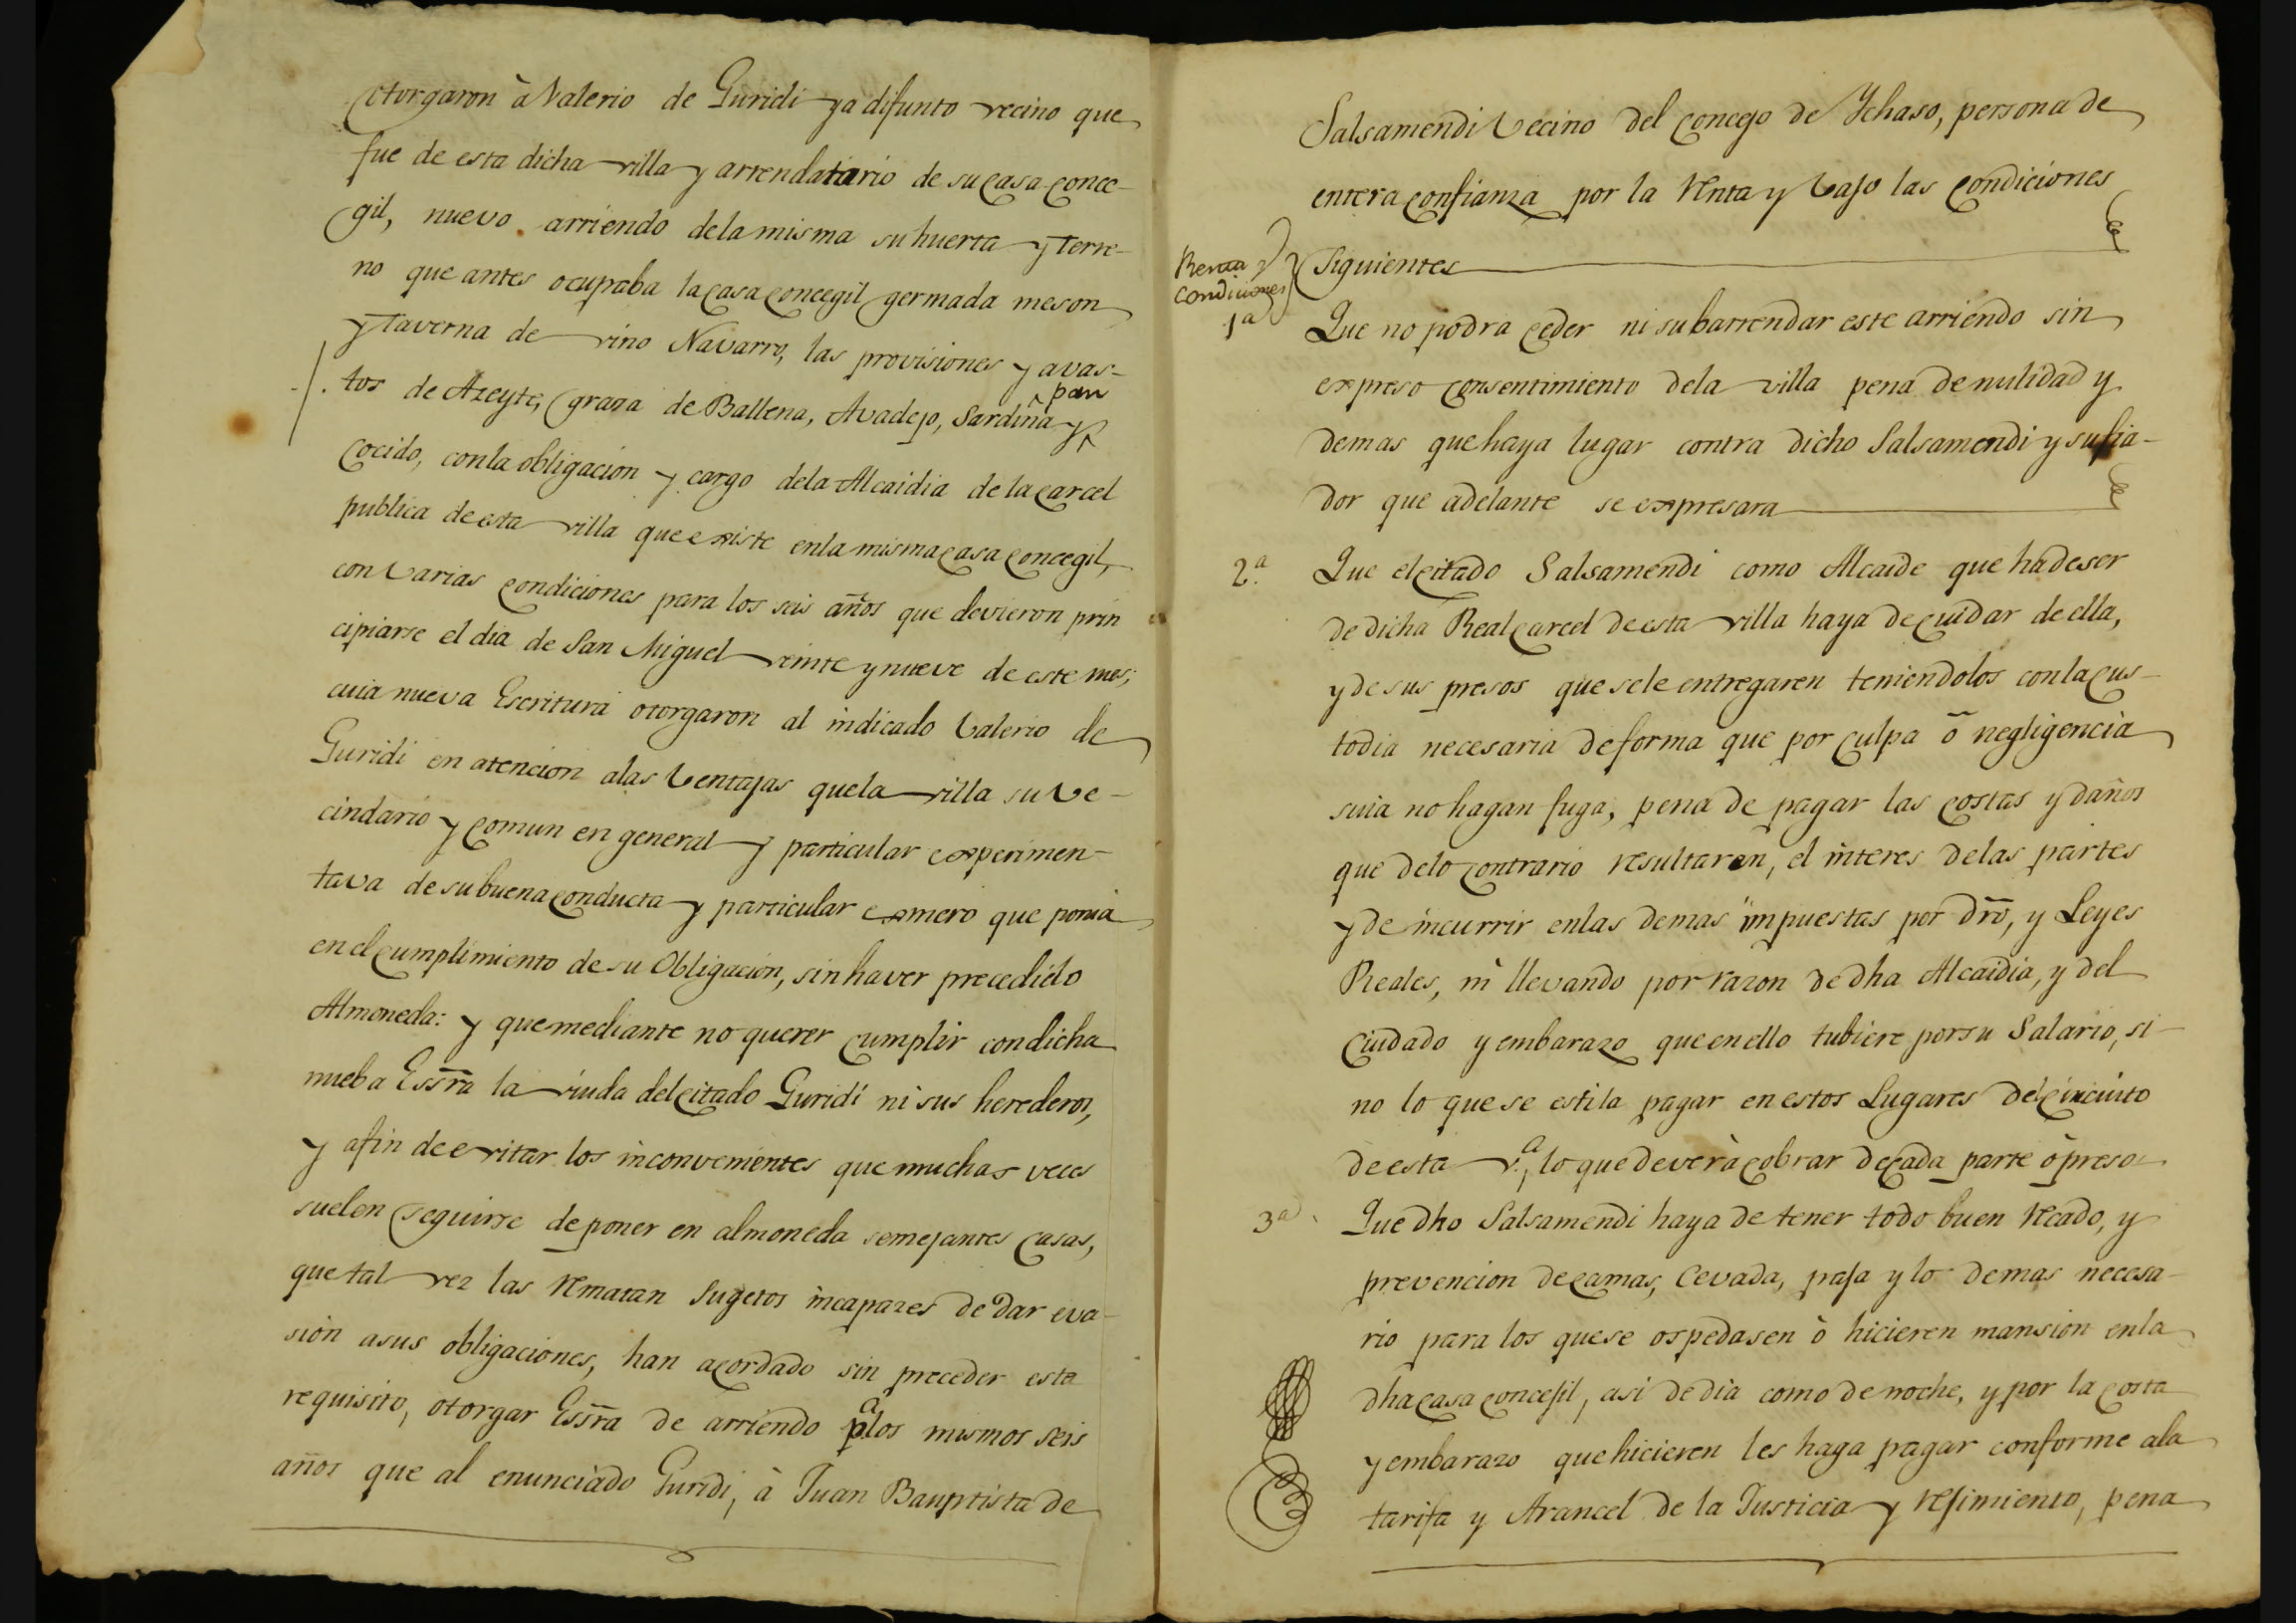 otorgaron à Valerio de Guridi ya difunto vecino que
fue de esta dicha villa y arrendatario de su casa conce-
gil, nuevo arriendo dela misma su huerta y terre-
no que antes ocupaba la casa concegil germada meson
y taverna de vino Navarro, las provisiones y avas-
tos de Azeyte, grasa de Ballena, Avadejo, Sardina y pan
cocido, con la obligacion y cargo dela Alcaidia de la carcel
publica de esta villa que existe en la misma casa concegil,
con varias condiciones para los seis años que devieron prin
cipiarse el dia de San Miguel veinte y nueve de este mes;
cuia nueva Escritura otorgaron al indicado Valerio de
Guridi en atencion alas Ventajas quela villa su Ve-
cindario y comun en general y particular experimen-
tava de su buena conducta y particular esmero que ponia
en el cumplimiento de su Obligacion, sin haver precedido
Almoneda: y que mediante no querer cumplir con dicha
nueba Essra la viuda del citado Guridi ni sus herederos,
y afin de evitar los inconvenientes que muchas veces
suelen seguirse de poner en almoneda semejantes casas,
que tal vez las rematan Sugetos incapazes de dar eva-
sion a sus obligaciones, han acordado sin preceder este
requisito, otorgar Essra de arriendo pa los mismos seis
años que al enunciado Guridi, à Juan Bauptista de
Salsamendi Vecino del Concejo de Ychaso, persona de
entera confianza por la renta y bajo las condiciones
Siguientes
Renta y
Condiciones
1a
Que no podra ceder ni subarrendar este arriendo sin
expreso consentimiento dela villa pena de nulidad y
demas que haya lugar contra dicho Salsamendi y su fia-
dor que adelante se expresara
2.a Que el citado Salsamendi como Alcaide que ha de ser
de dicha Real carcel de esta villa haya de cuidar de ella,
y de sus presos que sele entregaren teniendolos con la cus-
todia necesaria de forma que por culpa ô negligencia
suia no hagan fuga, pena de pagar las costas y daños
que delo contrario resultaren, el interes delas partes
y de incurrir en las demas impuestas por dro, y Leyes
Reales, ni llevando por razon de dha Alcaidia, y del
Cuidado y embarazo que en ello tubiere por su Salario, si-
no lo que se estila pagar en estos Lugares del circuito
de esta v.a, lo que deverà cobrar de cada parte ò preso
3a Que dho Salsamendi haya de tener todo buen recado, y
prevencion de camas, Cevada, paja y lo demas necesa-
rio para los que se ospedasen ò hicieren mansion en la
dha casa concejil, asi de dia como de noche, y por la costa
y embarazo que hicieren les haga pagar conforme ala
tarifa y Arancel de la Justicia y rejimiento, pena